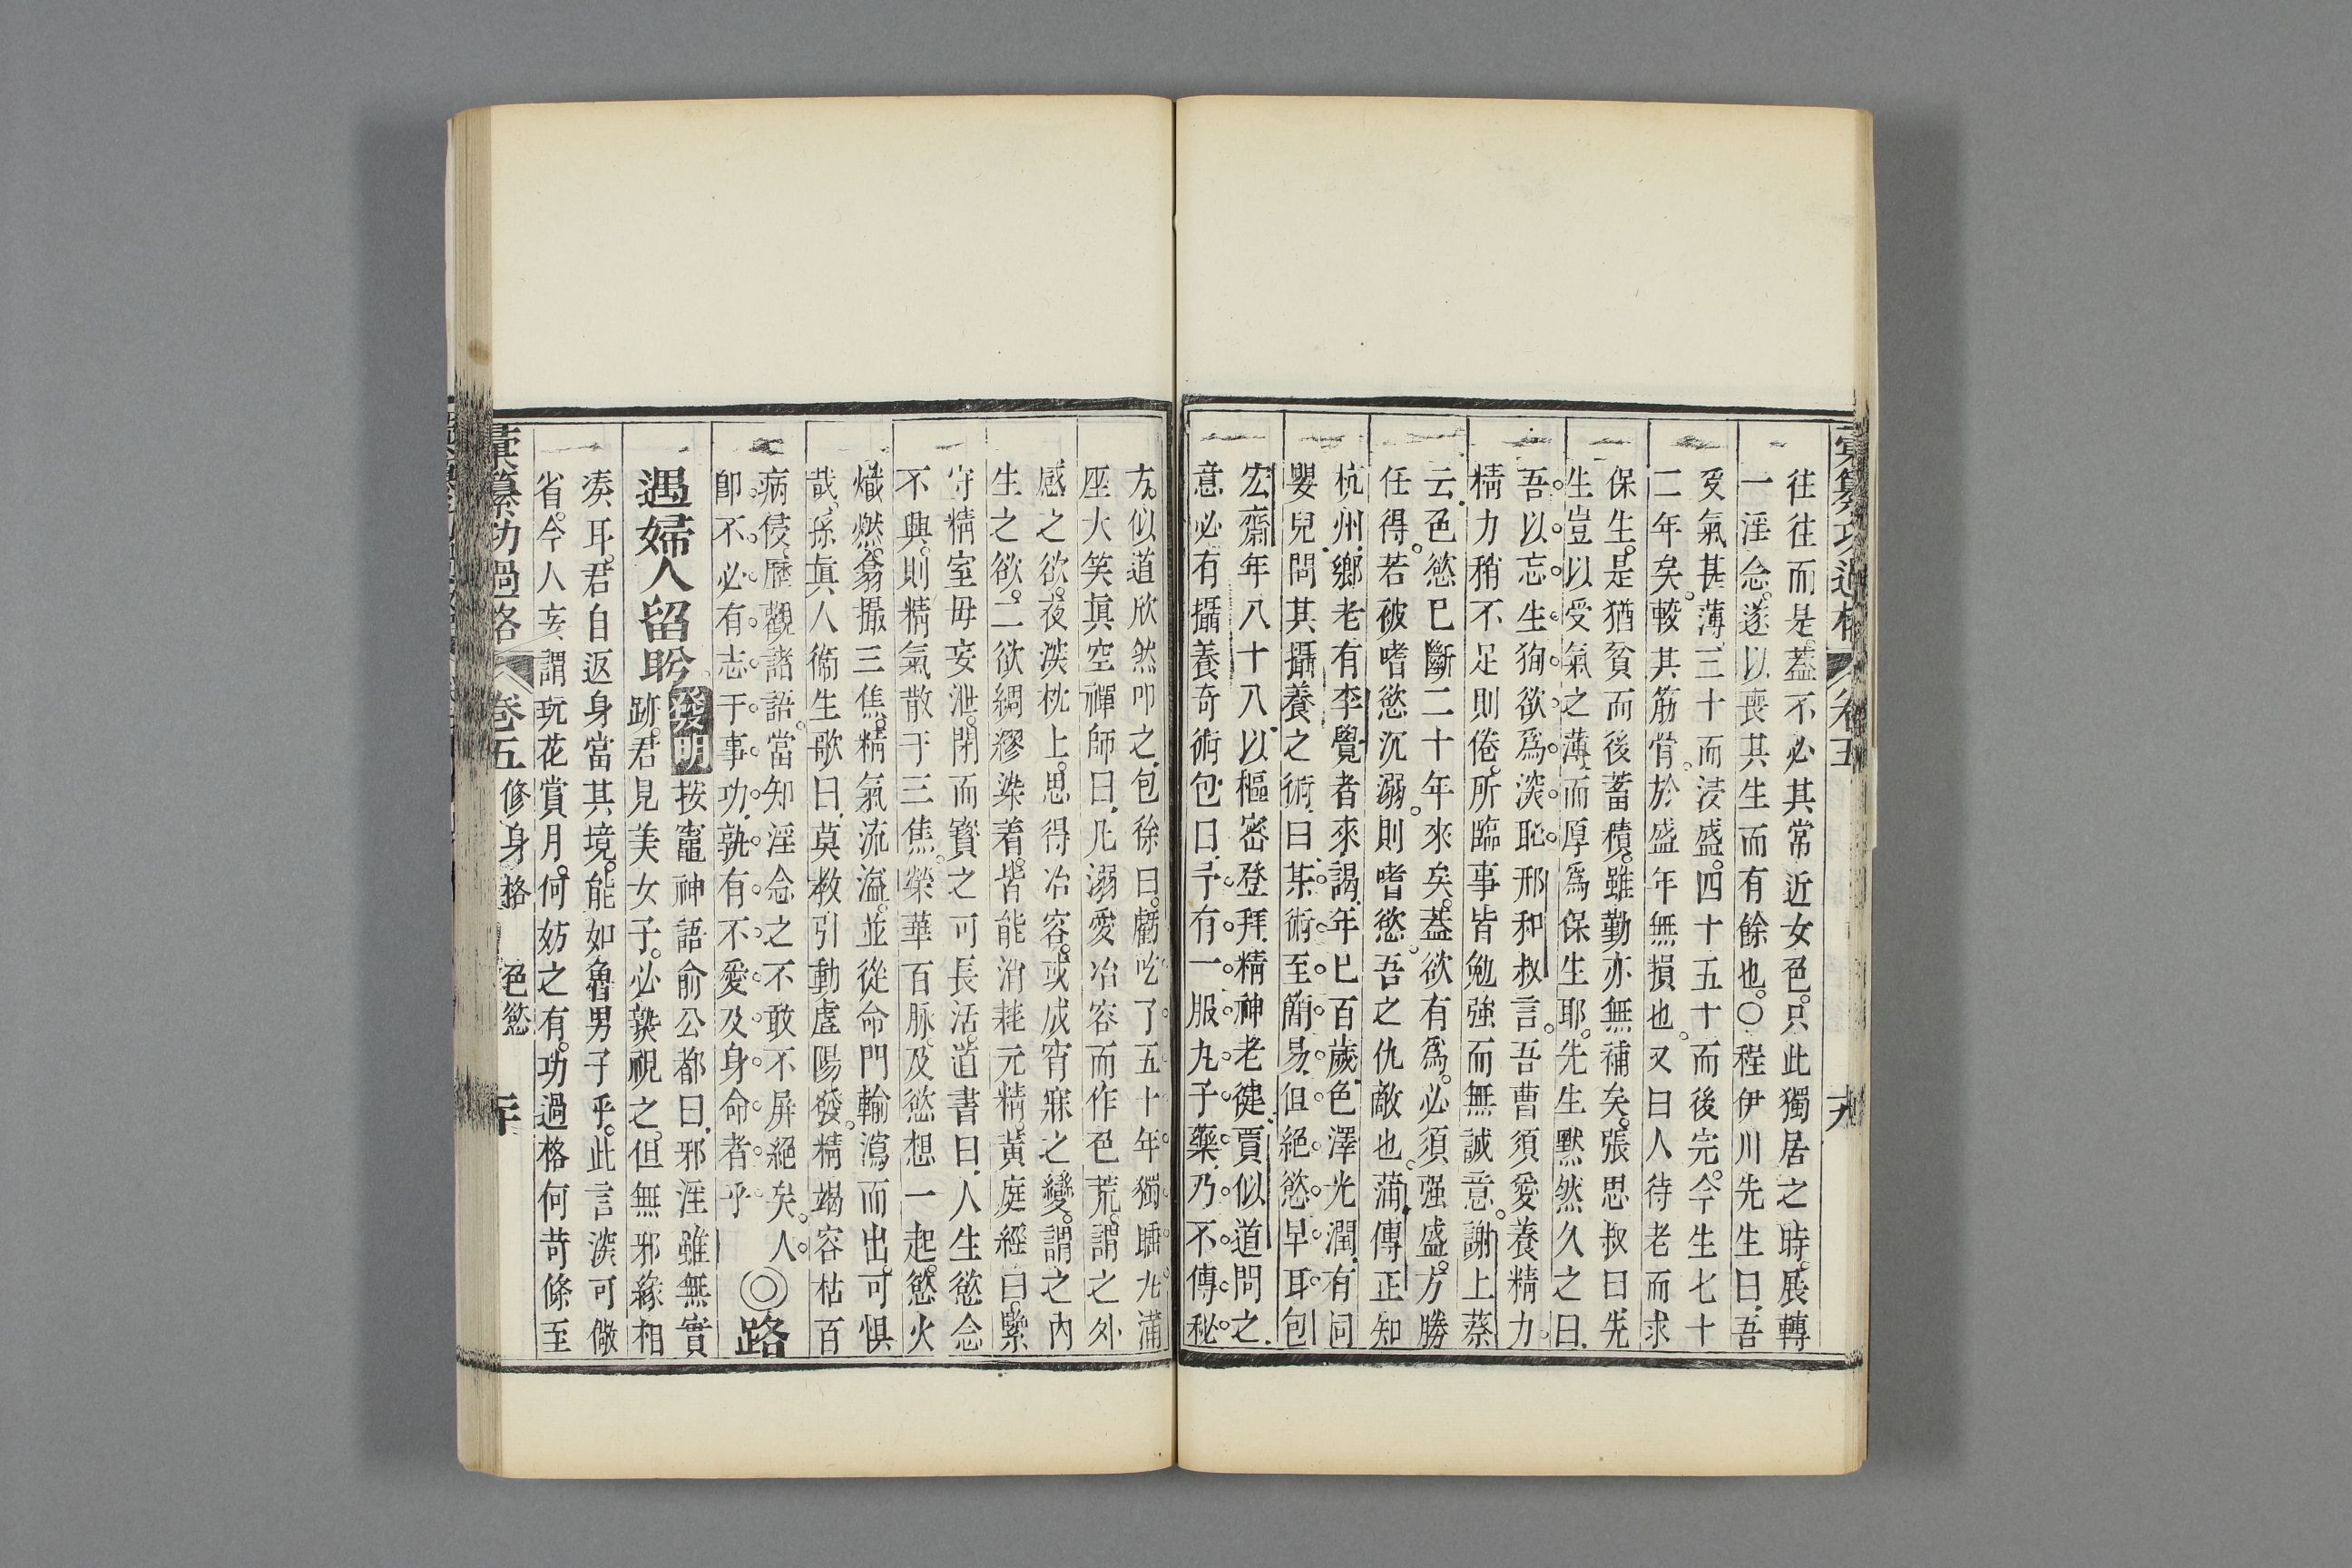 彙纂功過格 卷五 十九
往往而是。蓋不必其常近女色。只此獨居之時。展轉
一淫念。遂以喪其生而有餘也。○程伊川先生曰、吾
受氣甚薄、三十而浸盛。四十五十而後完。今生七十
二年矣。較其筋骨。於盛年無損也。又曰人待老而求
保生。是猶貧而後蓄積。雖勤亦無補矣。張思叔曰先
生豈以受氣之薄、而厚爲保生耶。先生默然久之曰、
吾以忘生狥欲爲深恥。邢和叔言。吾曹須愛養精力。
精力稍不足則倦。所臨事皆勉強而無誠意。謝上蔡
云、色慾已斷二十年來矣。蓋欲有爲。必須强盛。方勝
任得。若被嗜慾沉溺。則嗜慾。吾之仇敵也。蒲傳正知
杭州、鄉老有李覺者來謁、年已百歲、色澤光潤、有同
嬰兒、問其攝養之術、曰某術至簡易、但絕慾早耳包
宏齋年八十八、以樞密登拜、精神老健、賈似道問之、
意必有攝養奇術、包曰、予有一服九子藥、乃不傳秘
方。似道欣然叩之、包徐曰。虧吃了五十年獨睡丸滿
座大笑眞空禪師曰、凡溺愛冶容而作色荒。謂之外
感之欲。夜深枕上。思得冶容。或成宵寐之變。謂之內
生之欲。二欲綢繆染着。皆能消耗元精。黃庭經曰。緊
守精室毋妄泄。閉而寳之可長活。道書曰、人生慾念
不興。則精氣散于三焦。榮華百脉。及慾想一起。慾火
熾燃。翕撮三焦。精氣流溢。並從命門輸瀉而出。可惧
哉、孫眞人衞生歌曰、莫教引動虛陽發。精竭容枯百
病侵、歷觀諸語。當知淫念之不敢不屏絕矣。人
卽不必有志于事功、孰有不愛及身命者乎 ◎路
遇婦人留盼 發明 按竈神語俞公都曰、邪淫雖無實
跡。君見美女子。必熟視之。但無邪緣相
湊耳。君自返身當其境。能如魯男子乎。此言深可儆
省。今人妄謂玩花賞月。何妨之有。功過格何苛條至
彙纂功過格 卷五 修身格 色慾 二十